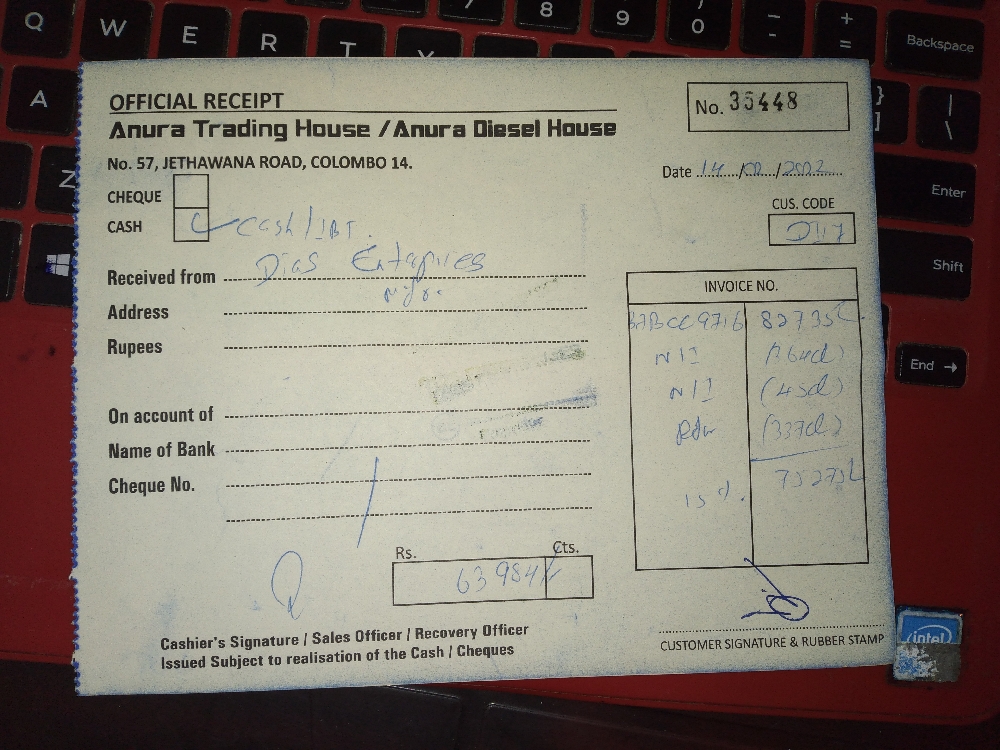 Q W E R T 7 8 9 ) 0 - - + = Backspace
A } ] | \
Z Enter
Shift
End →
OFFICIAL RECEIPT
No. 35448
Anura Trading House / Anura Diesel House
No. 57, JETHAWANA ROAD, COLOMBO 14.
Date 14/ /2002
CHEQUE
CUS. CODE
CASH Cash / IBT.
D117
Received from Dias Enteprices
INVOICE NO.
Address
82735/-
Rupees
N11
N11
(450/)
On account of
Name of Bank
75275/-
Cheque No.
15%.
Rs. Cts.
63984/-
Cashier's Signature / Sales Officer / Recovery Officer
CUSTOMER SIGNATURE & RUBBER STAMP
Issued Subject to realisation of the Cash / Cheques
intel